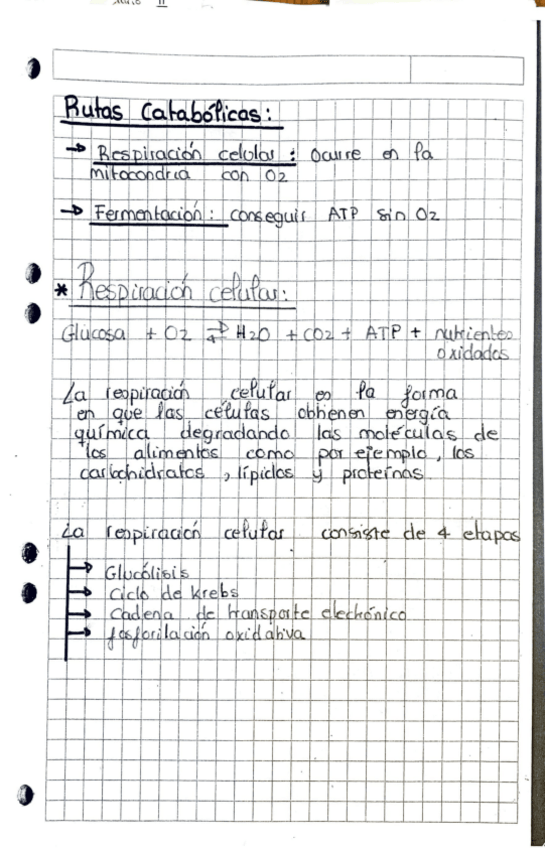 Rutas Catabólicas:
→ Respiración celular: Ocurre en la
mitocondria con O2
→ Fermentación: conseguir ATP sin O2
* Respiración celular:
Glucosa + O2 ⇄ H2O + CO2 + ATP + nutrientes
oxidados
La respiración celular es la forma
en que las células obtienen energía
química degradando las moléculas de
los alimentos como por ejemplo, los
carbohidratos, lípidos y proteínas.
La respiración celular consiste de 4 etapas
→ Glucólisis
→ Ciclo de Krebs
→ Cadena de transporte electrónico
→ fosforilación oxidativa